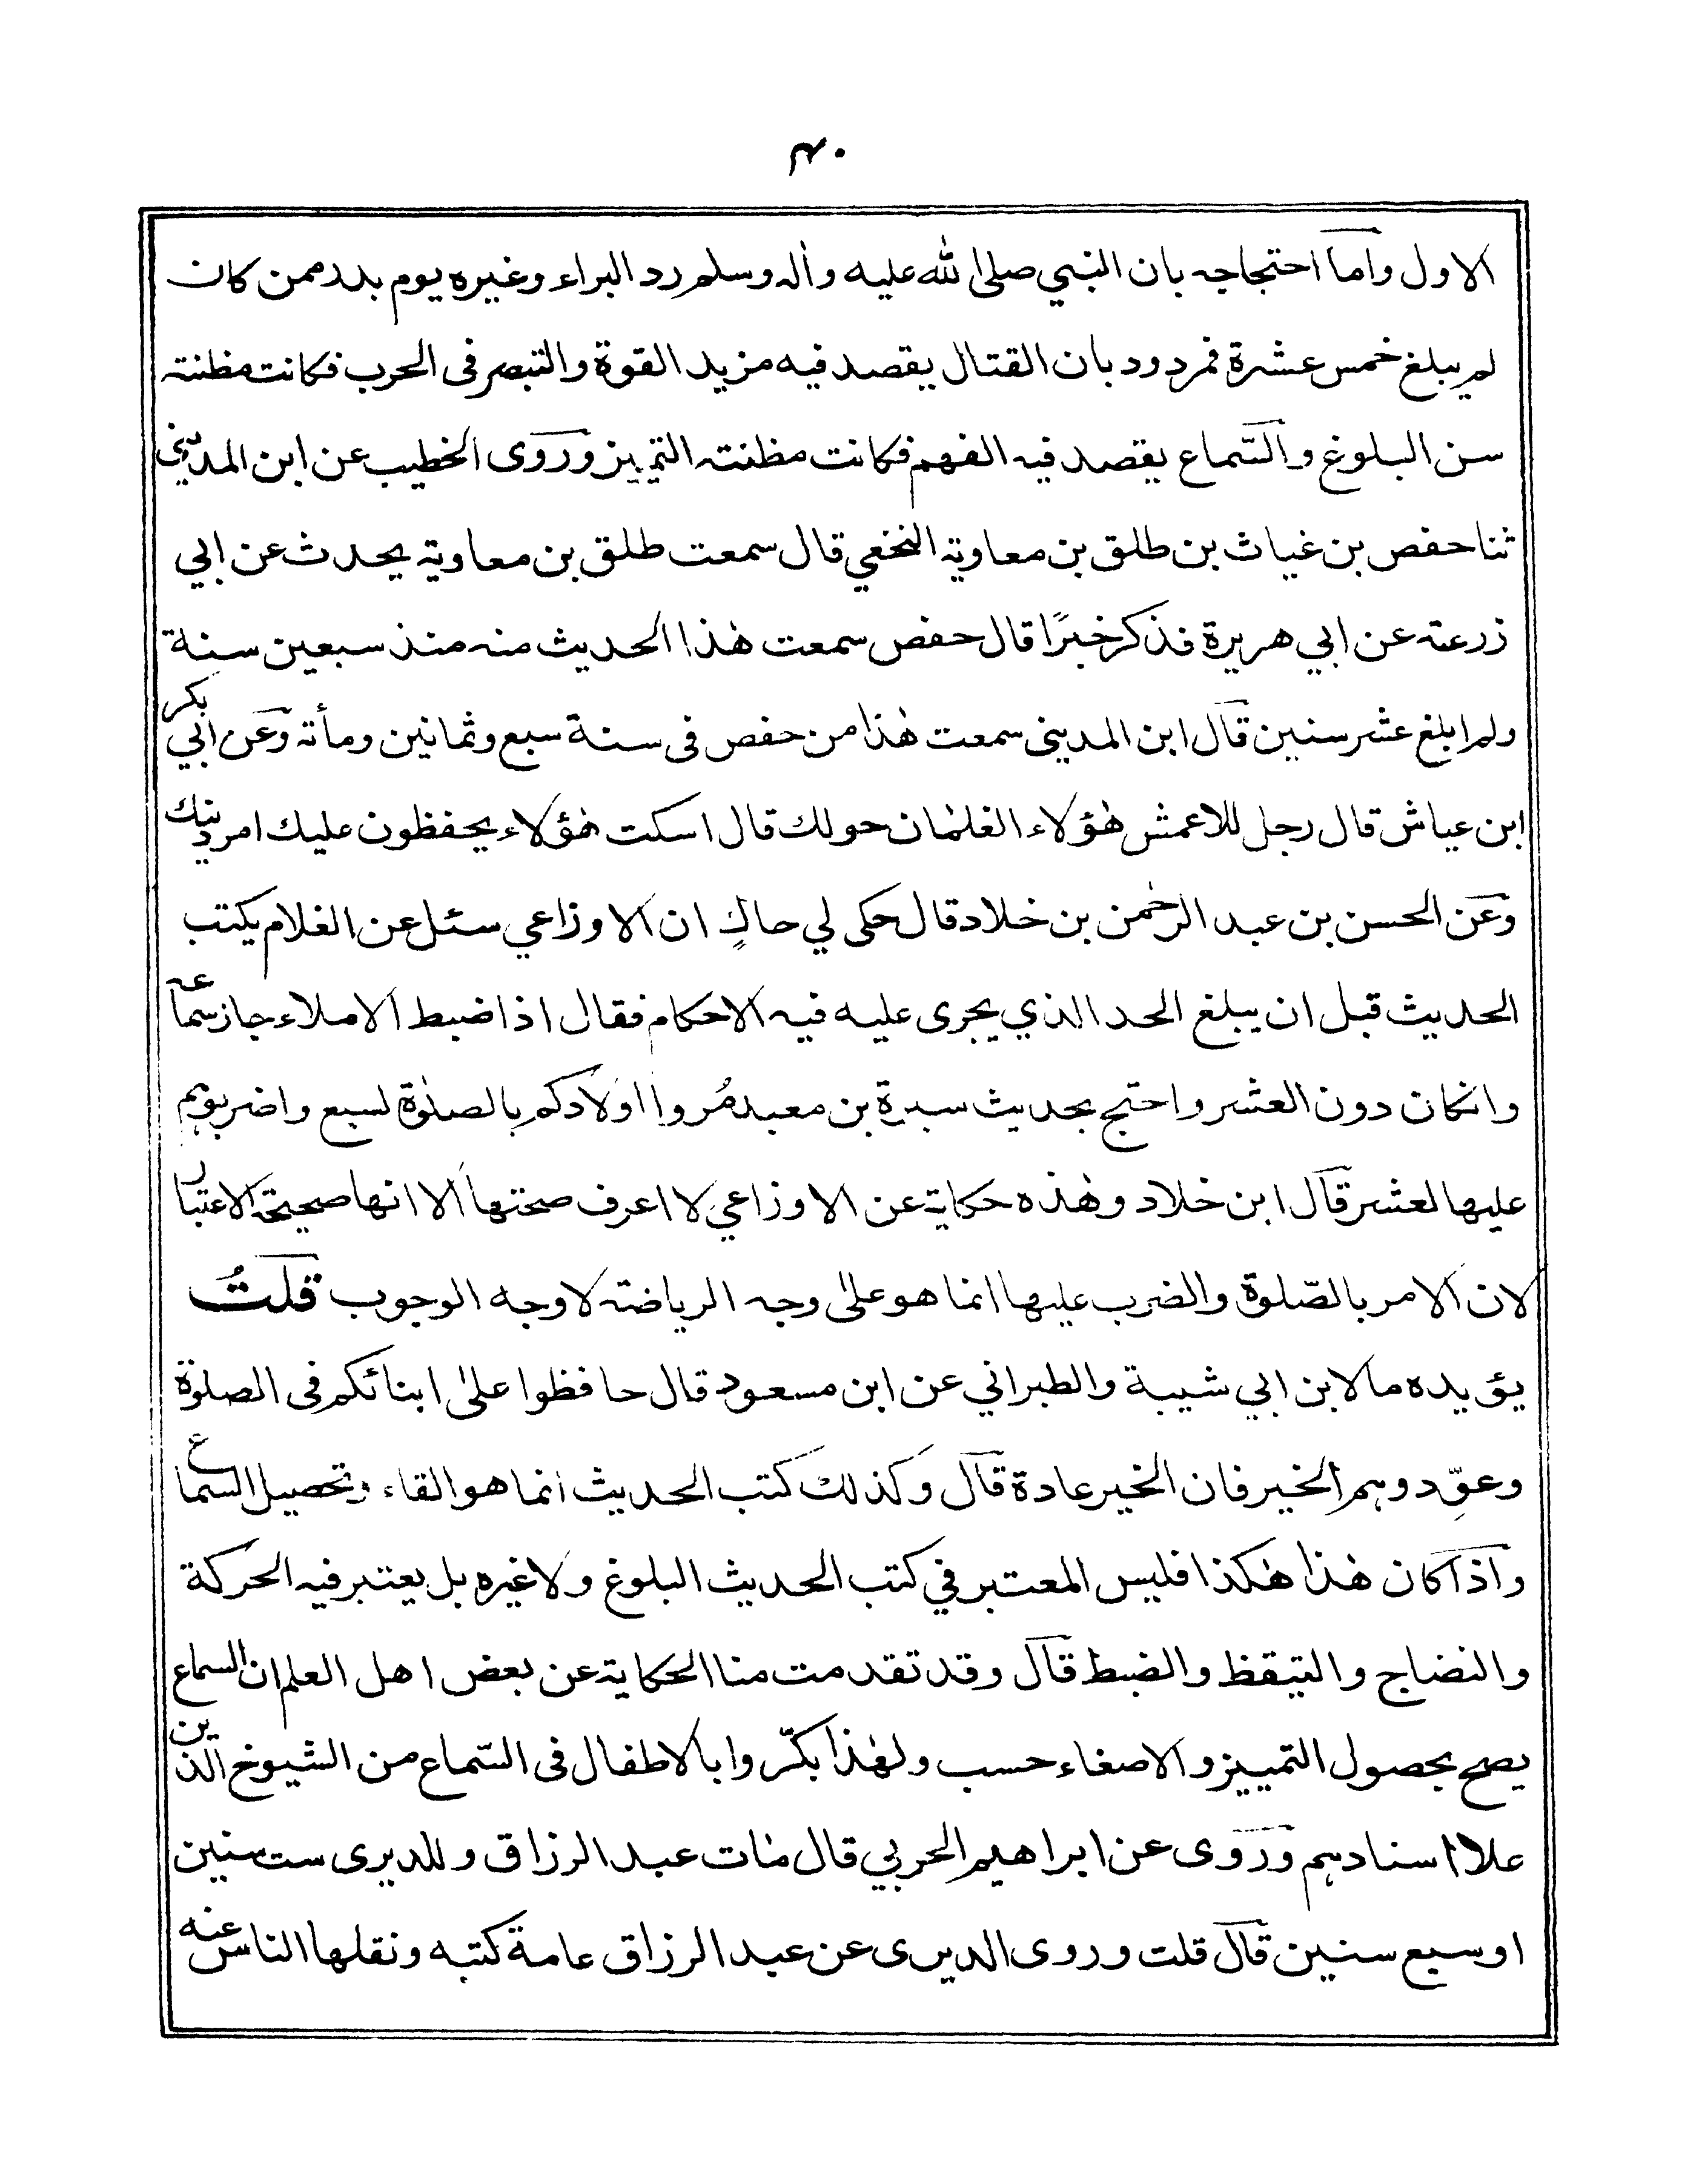 ۴۰
الاول واما احتجاجه بان النبي صلى الله عليه وأله وسلم رد البراء وغيره يوم بدر ممن كان
لم يبلغ خمس عشرة فمردود بان القتال يقصد فيه مزيد القوة والتبصر فى الحرب فكانت مظنته
سن البلوغ والسماع يقصد فيه الفهم فكانت مظنته التمييز وروى الخطيب عن ابن المديني
ثنا حفص بن غياث بن طلق بن معاوية النخعي قال سمعت طلق بن معاوية يحدث عن ابي
زرعة عن ابي هريرة فذكر خبرًا قال حفص سمعت هٰذا الحديث منه منذ سبعين سنة
ولم ابلغ عشر سنين قال ابن المدينى سمعت هٰذا من حفص فى سنة سبع وثمانين ومأئة وعن ابي بكر
ابن عياش قال رجل للاعمش هٰؤلاء الغلمان حولك قال اسكت هٰؤلاء يحفظون عليك امر دينك
وعن الحسن بن عبد الرحمٰن بن خلاد قال حكى لي حاكٍ ان الاوزاعي سئل عن الغلام يكتب
الحديث قبل ان يبلغ الحد الذي يجرى عليه فيه الاحكام فقال اذا ضبط الاملاء جاز سماعه
وانكان دون العشر واحتج بحديث سبرة بن معبد مُروا اولادكم بالصلٰوة لسبع واضربوهم
عليها لعشر قال ابن خلاد وهٰذه حكاية عن الاوزاعي لا اعرف صحتها الا انها صحيحة الاعتبار
لان الامر بالصّلوة والضرب عليها انما هو علٰى وجه الرياضة لا وجه الوجوب قلتُ
يؤيده ما لابن ابي شيبة والطبراني عن ابن مسعود قال حافظوا علىٰ ابنائكم فى الصلوة
وعوّدوهم الخير فان الخير عادة قال وكذلك كتب الحديث انما هو القاء وتحصيل السماع
واذا كان هٰذا هٰكذا فليس المعتبر في كتب الحديث البلوغ ولا غيره بل يعتبر فيه الحركة
والنضاج والتيقظ والضبط قال وقد تقدمت منا الحكاية عن بعض اهل العلم ان السماع
يصح بحصول التمييز والاصغاء حسب ولهٰذا بكّروا بالاطفال فى السّماع من الشيوخ الذين
علا اسنادهم وروى عن ابراهيم الحربي قال مات عبد الرزاق وللدبرى ست سنين
او سبع سنين قال قلت وروى الدبرى عن عبد الرزاق عامة كتبه ونقلها الناس عنه